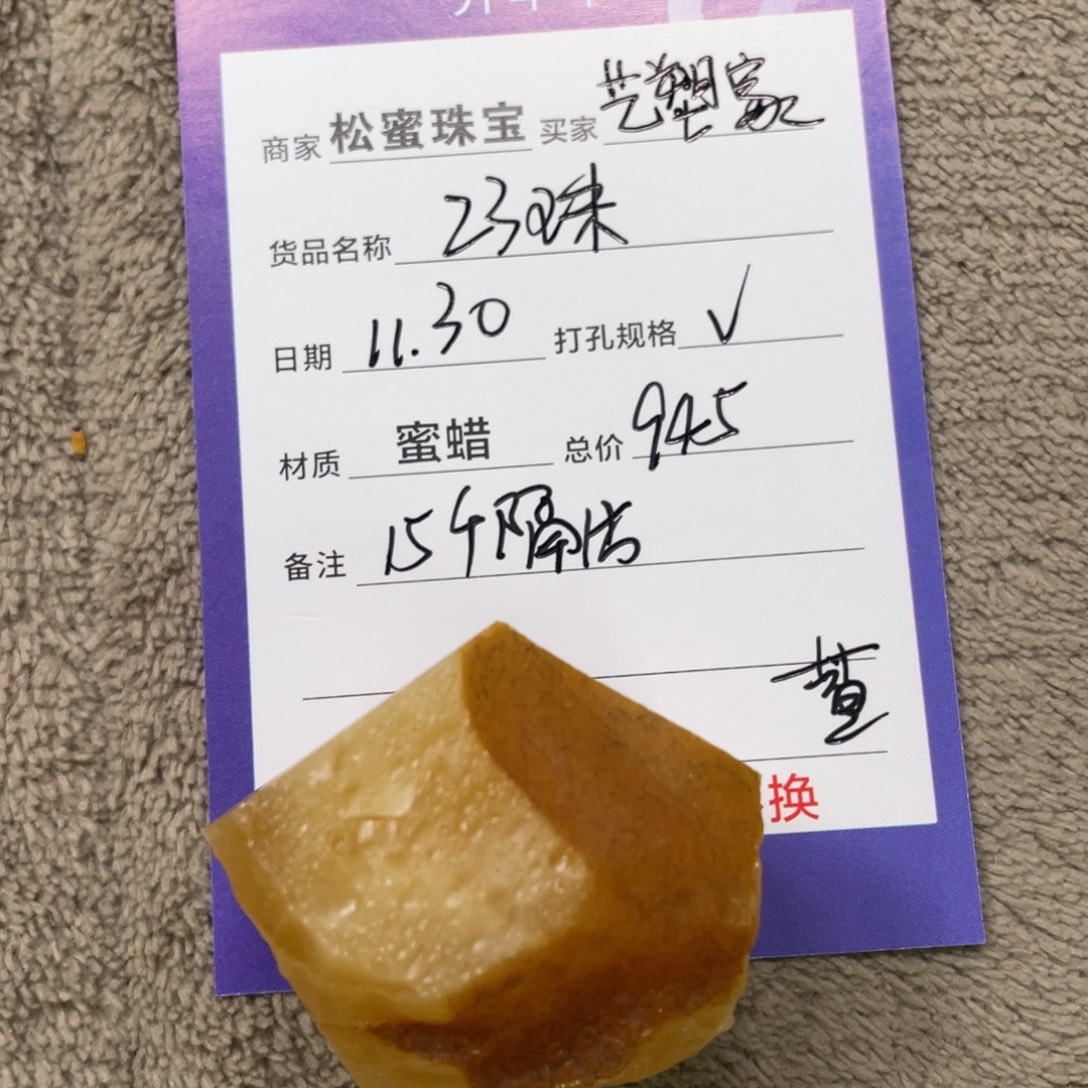 商家 松蜜珠宝 买家 艺塑家
货品名称 23珠
日期 11.30 打孔规格 √
材质 蜜蜡 总价 945
备注 15个隔片
换